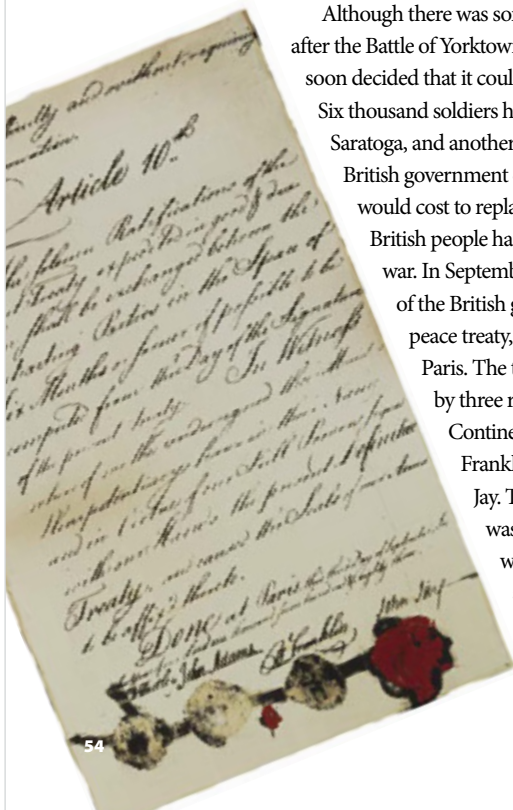 Although there was
after the Battle of Yorktow
soon decided that it coul
Six thousand soldiers h
Saratoga, and another
British government
would cost to repla
British people ha
war. In Septemb
of the British g
peace treaty,
Paris. The t
by three r
Contine
Frankl
Jay. T
was
w
and without requiring
Article 10th
solemn Ratifications of the
Treaty expedited in good & due
shall be exchanged between the
Parties in the Space of
Six Months or sooner if possible to be
computed from the Day of the Signature
of the present Treaty. In Witness
whereof we the undersigned their
Plenipotentiary have in their Name
and in Virtue of our Full Powers
with our Hands the present Definitive
Treaty, and caused the Seals of our Arms
to be affix'd thereto.
Done at Paris this third Day of September
D Hartley John Adams B Franklin John Jay
54